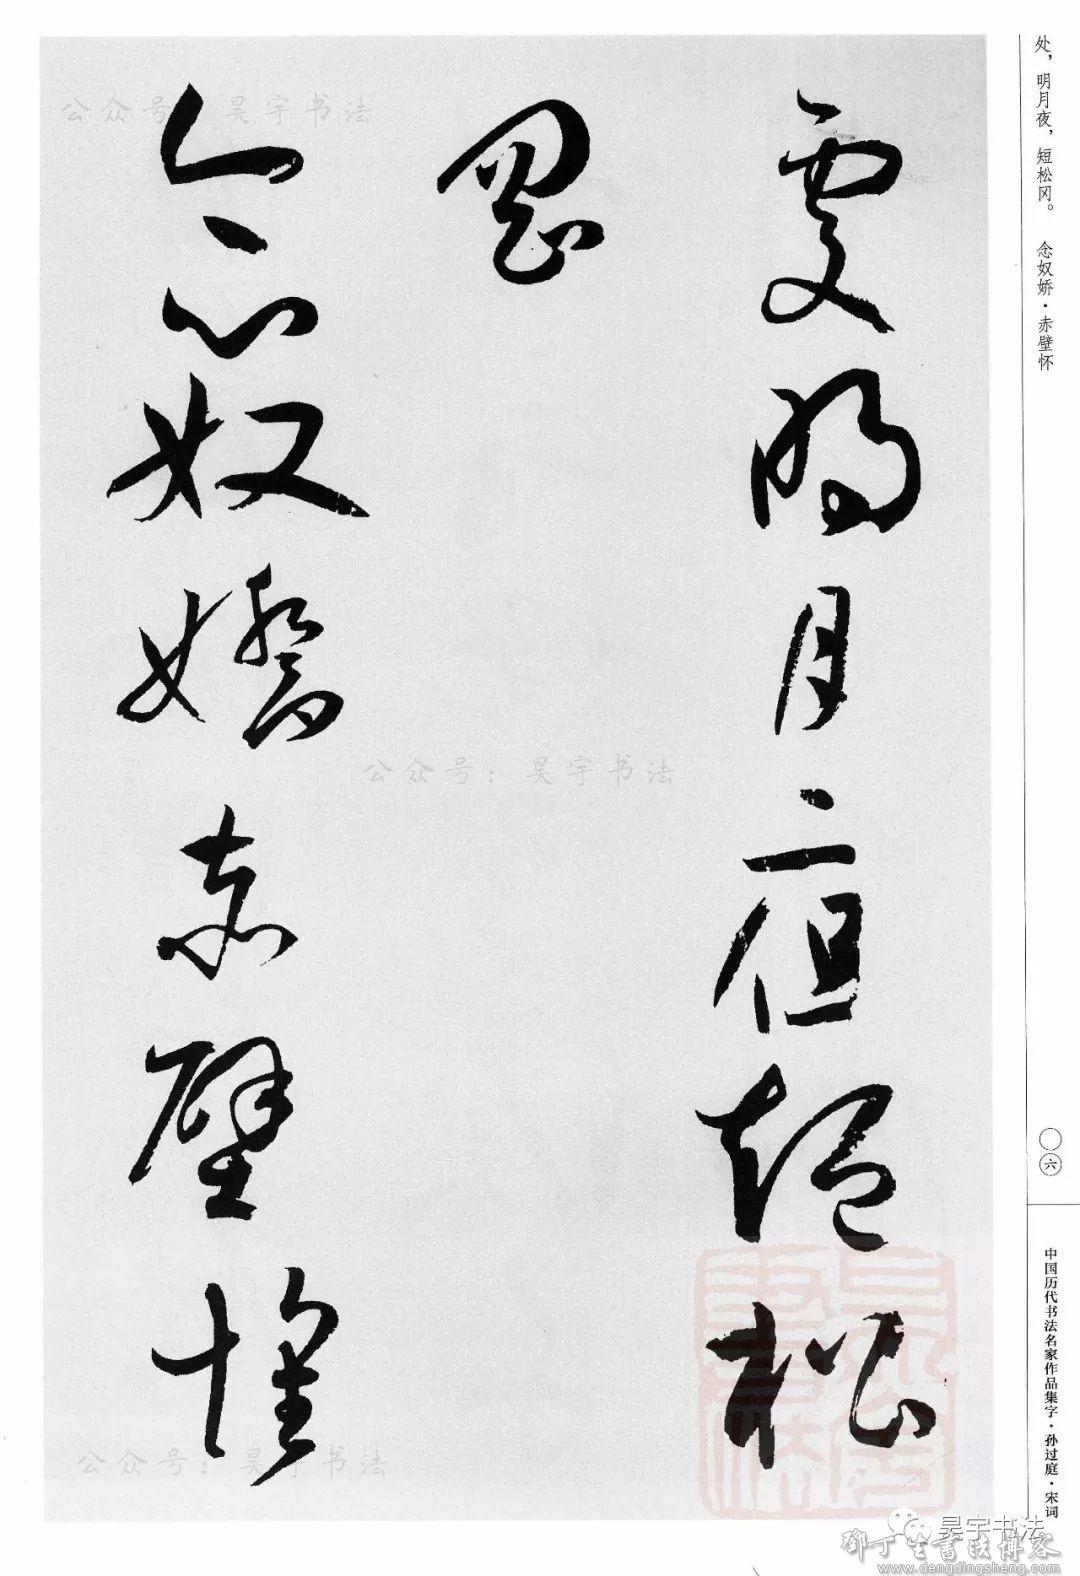 處明月夜短松
岡
念奴嬌赤壁懷
处，明月夜，短松冈。　念奴娇·赤壁怀
〇六
中国历代书法名家作品集字·孙过庭·宋词
公众号：昊宇书法
公众号：昊宇书法
公众号：昊宇书法
昊宇书法
鄧丁生書法博客
www.dengdingsheng.com